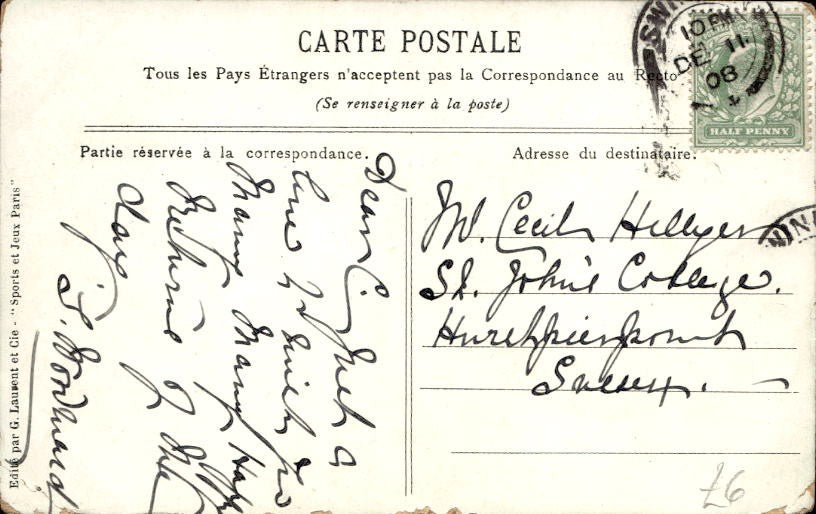 CARTE POSTALE
Tous les Pays Étrangers n'acceptent pas la Correspondance au Recto
(Se renseigner à la poste)
Partie réservée à la correspondance.
Adresse du destinataire.
HALF PENNY
10 PM
DE 11
08
Edité par G. Laurent et Cie - "Sports et Jeux Paris"
Dear C. Just a
line to wish you
Many Many Happy
Returns of the
day
S. Woodward
Mr. Cecil Hillyer
St. John's College.
Hurstpierpoint
Sussex.
£6